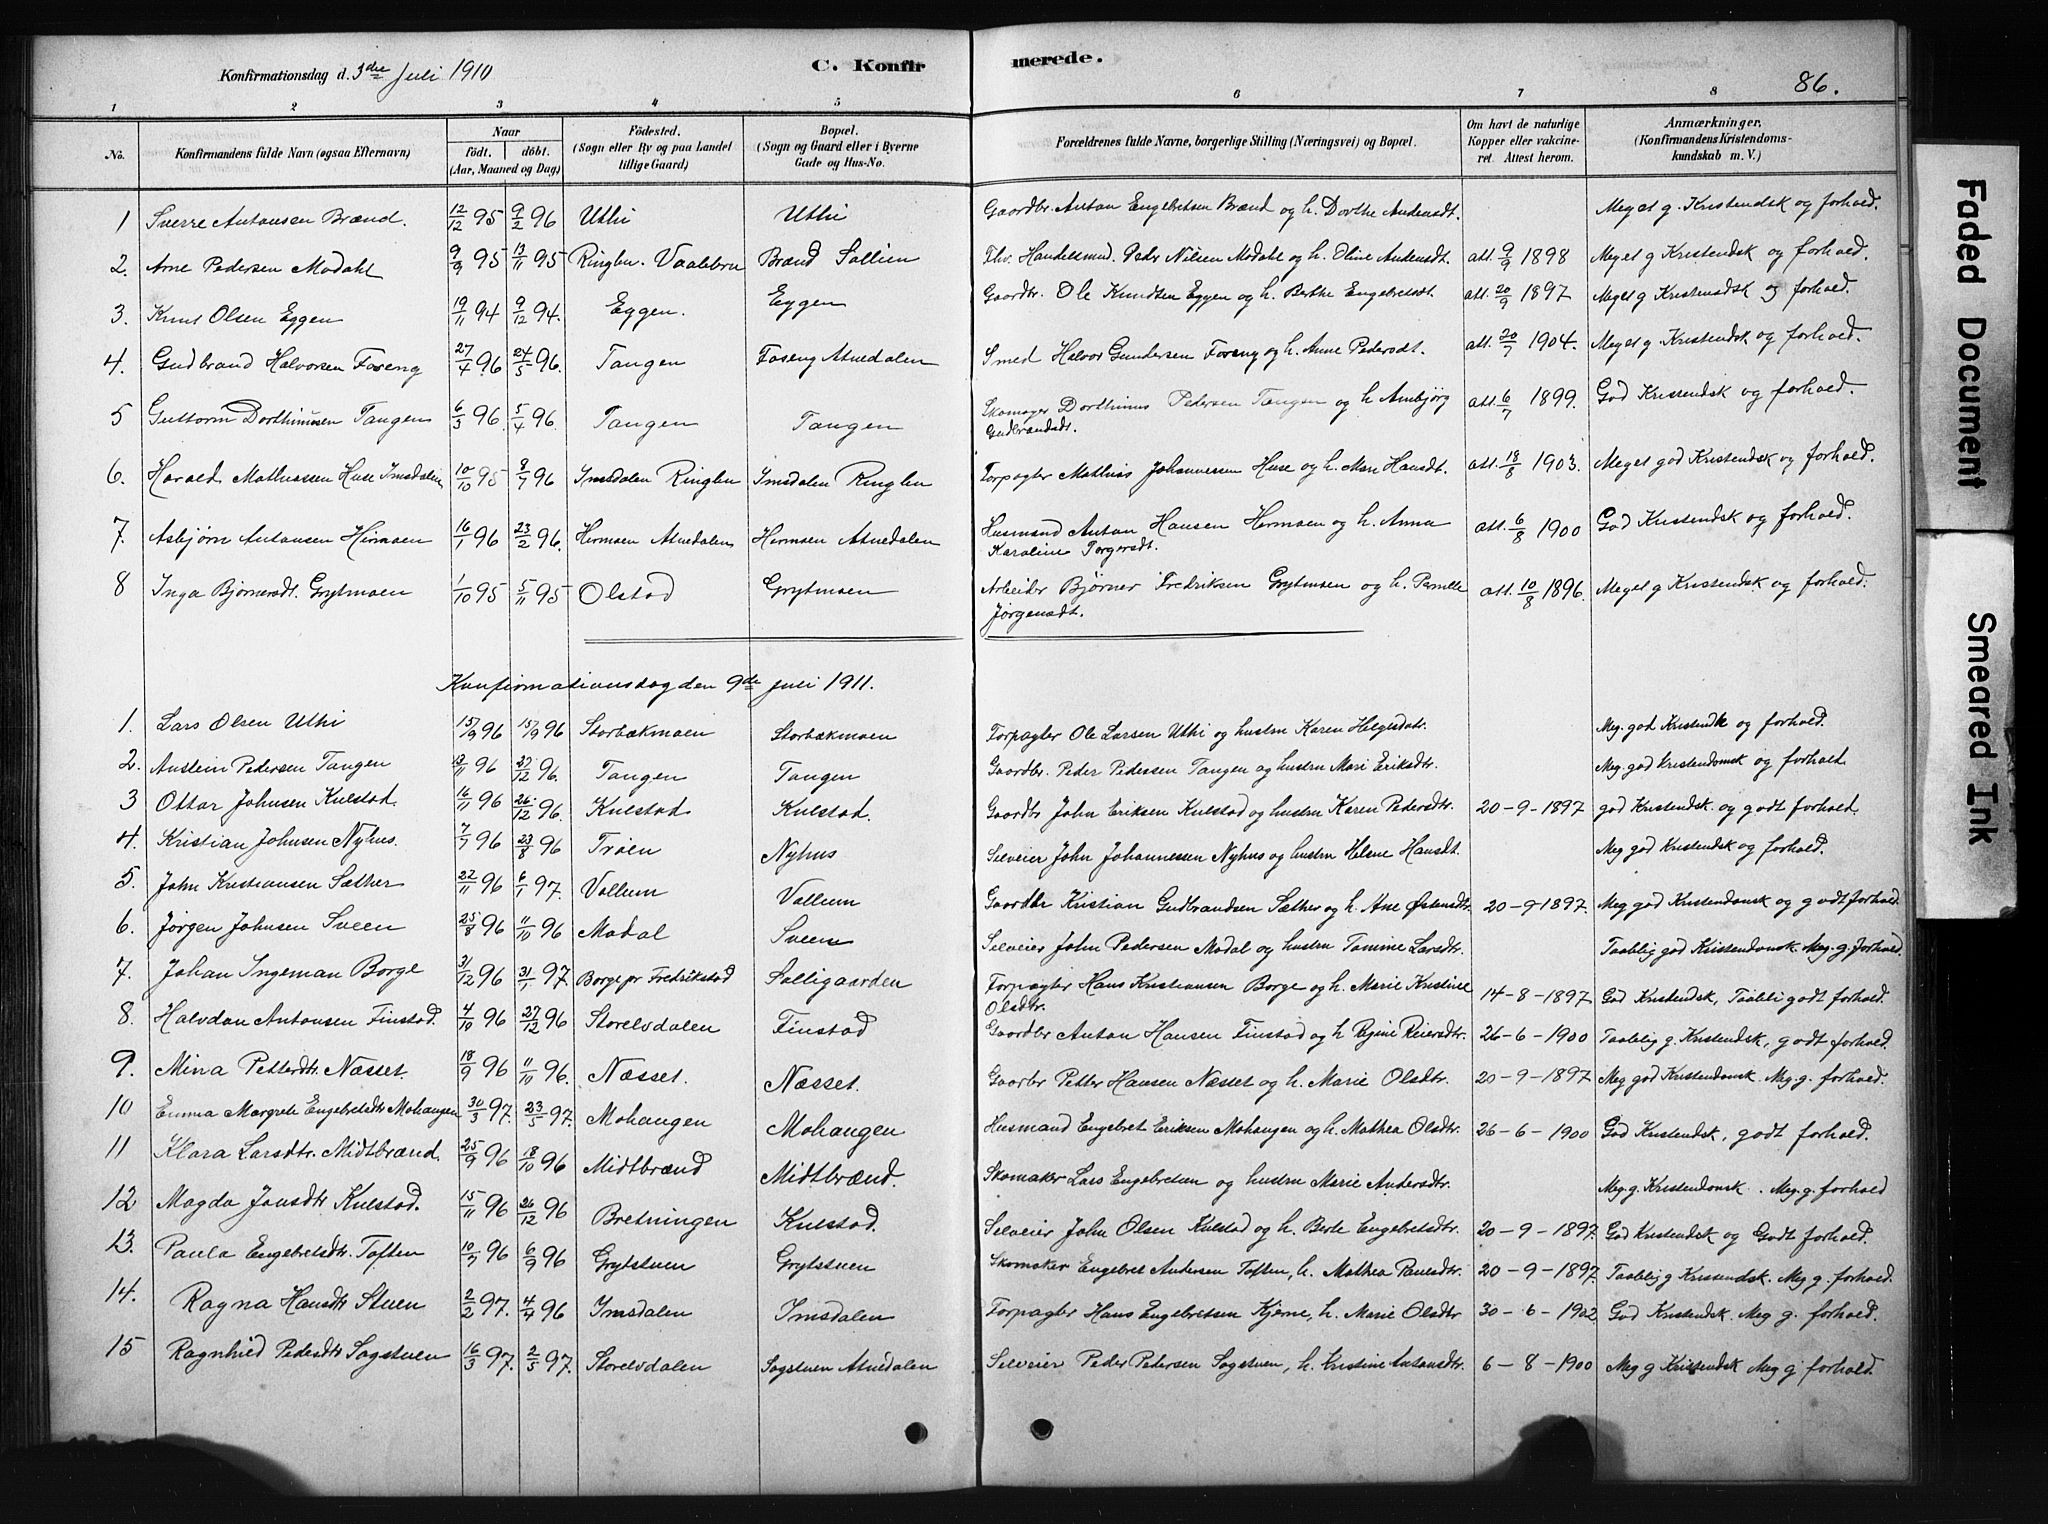 Konfirmationsdag d. 3die Juli 1910
C. Konfirmerede.
86.
1 2 3 4 5 6 7 8
No.
Konfirmandens fulde Navn (ogsaa Efternavn)
Naar
født. døbt.
(Aar, Maaned og Dag)
Fødested.
(Sogn eller By og paa Landet tillige Gaard)
Bopæl.
(Sogn og Gaard eller i Byerne Gade og Hus-No.
Forældrenes fulde Navne, borgerlige Stilling (Næringsvei) og Bopæl.
Om havt de naturlige Kopper eller vakcineret. Attest herom.
Anmærkninger.
(Konfirmandens Kristendomskundskab m. V.)
1 Sverre Antonsen Brænd. 12/12 95 9/2 96 Uthi Uthi Gaardbr. Anton Engebretsen Brænd og h. Dorthe Andersdt. Meget g. Kristendsk og forhold.
2. Arne Pedersen Modahl 9/9 95 13/11 95 Ringbu. Vaalebru Brænd Sollien Fhv. Handelsmd. Peder Nilsen Modahl og h. Oline Andersdt. att. 9/9 1898 Meget g Kristendsk og forhold.
3. Knut Olsen Eggen 19/11 94 9/12 94. Eggen. Eggen Gaardbr. Ole Knudsen Eggen og h. Berthe Engebretsdt. att. 20/9 1897 Meget g Kristendsk og forhold.
4. Gudbrand Halvorsen Foseng 27/4 96. 24/5 96. Tangen Foseng Atnedalen Smed Halvor Gundersen Foseng og h. Anne Pedersdt. att. 20/7 1904. Meget g. Kristendsk og forhold.
5 Guttorm Dorthinusen Tangen 6/3 96. 5/4 96. Tangen Tangen Skomager Dorthinus Pedersen Tangen og h Ambjørg Gudbrandsdt. att. 6/7 1899. God Kristendsk og forhold.
6. Harald Mathiassen Huse Imsdalen 10/10 95 8/7 96 Imsdalen Ringbu Imsdalen Ringbu Forpagter Mathias Johannessen Huse og h. Mari Hansdt. att. 18/8 1903. Meget god Kristendsk og forhold.
7. Asbjørn Antonsen Hirmoen 16/1 96 23/2 96. Hermoen Atnedalen Hermoen Atnedalen Husmand Anton Hansen Hermoen og h. Anna Karoline Torgersdt. att. 6/8 1900 God Kristendsk og forhold.
8 Inga Bjørnersdt. Grytmoen 1/10 95 5/11 95 Olstad Grytmoen Arbeider Bjørner Fredriksen Grytmoen og h. Pernille Jørgensdt. att. 10/8 1896. Meget g. Kristendsk og forhold.
Konfirmationsdag den 9de juli 1911.
1. Lars Olsen Uthi 15/9 96 15/9 96 Storbækmoen Storbækmoen Forpagter Ole Larsen Uthi og hustru Karen Helgesdatr. Meg. god Kristendk og forhold.
2. Austein Pedersen Tangen 13/11 96 27/12 96. Tangen Tangen Gaardbr. Peder Pedersen Tangen og hustru Mari Eriksdtr. Meg. god Kristendomsk og forhold
3 Ottar Johnsen Kulstad. 16/11 96 26/12 96. Kulstad Kulstad. Gaardbr John Eriksen Kulstad og hustru Karen Pedersdtr. 20-9-1897 god Kristendsk. og godt forhold.
4. Kristian Johnsen Nyhus. 7/7 96 23/8 96 Trøen Nyhus Selveier John Johannessen Nyhus og hustru Helene Hansdt. Meg god Kristendsk og forhold.
5. John Kristiansen Sæther 22/11 96 6/1 97. Vollum Vollum Gaardbr Kristian Gudbrandsen Sæther og h. Ane Østensdtr. 20-9-1897. Meg god Kristendomsk og godt forhold.
6. Jørgen Johnsen Sveen 25/8 96 11/10 96 Modal Sveen Selveier John Pedersen Modal og hustru Tomine Larsdtr. Taablig god Kristendomsk. Meg. g. forhold
7. Johan Ingeman Borge 31/12 96 31/1 97 Borge pr Fredrikstad Solligaarden Forpagter Hans Kristiansen Borge og h. Marie Kristine Olsdtr. 14-8-1897 God Kristendsk, Taabli godt forhold.
8. Halvdan Antonsen Finstad. 4/10 96 27/12 96 Storelvdalen Finstad Gaardbr Anton Hansen Finstad og h Regine Reiersdtr. 26-6-1900 Taablig g. Kristendsk, godt forhold.
9. Mina Petterdtr Næsset. 18/9 96 11/10 96. Næsset. Næsset. Gaardbr Petter Hansen Næsset og h. Marie Olsdtr. 20-9-1897 Meg god Kristendomsk. Meg. g. forhold.
10 Emma Margrete Engebretsdtr Mohangen 30/3 97. 23/5 97. Mohangen Mohangen Husmand Engebret Eriksen Mohangen og h. Mathea Olsdtr. 26-6-1900 God Kristendsk, godt forhold.
11 Klara Larsdtr. Midtbrænd. 25/9 96 18/10 96 Midtbrænd Midtbrænd. Skomaker Lars Engebretsen og hustru Marie Andersdtr. Meg. g. Kristendomsk. Meg. g. forhold
12 Magda Jonsdtr Kulstad. 15/11 96 26/12 96 Bretningen Kulstad. Selveier John Olsen Kulstad og h. Berte Engebretsdtr. 20-9-1897. God Kristendsk og Godt forhold.
13. Paula Engebretsdtr. Toften 10/7 96 6/9 96 Grytstuen Grytstuen Skomaker Engebret Andersen Toften, h. Mathea Paulsdtr. 20-9-1897. Taablig g Kristendsk. Meg g. forhold.
14. Ragna Hansdtr Stuen 2/2 97. 4/4 96 Imsdalen Imsdalen Forpagter Hans Engebretsen Kjerne, h. Marie Olsdtr 30-6-1902. God Kristendsk. Meg g. forhold.
15 Ragnhild Pedersdtr Sagstuen 16/3 97. 2/5 97. Storelvdalen Sagstuen Atnedalen Selveier Peder Pedersen Sagstuen, h. Kristine Antonsdtr. 6-8-1900 Meg g Kristendsk Meg g. forhold.
Faded Document
Smeared Ink